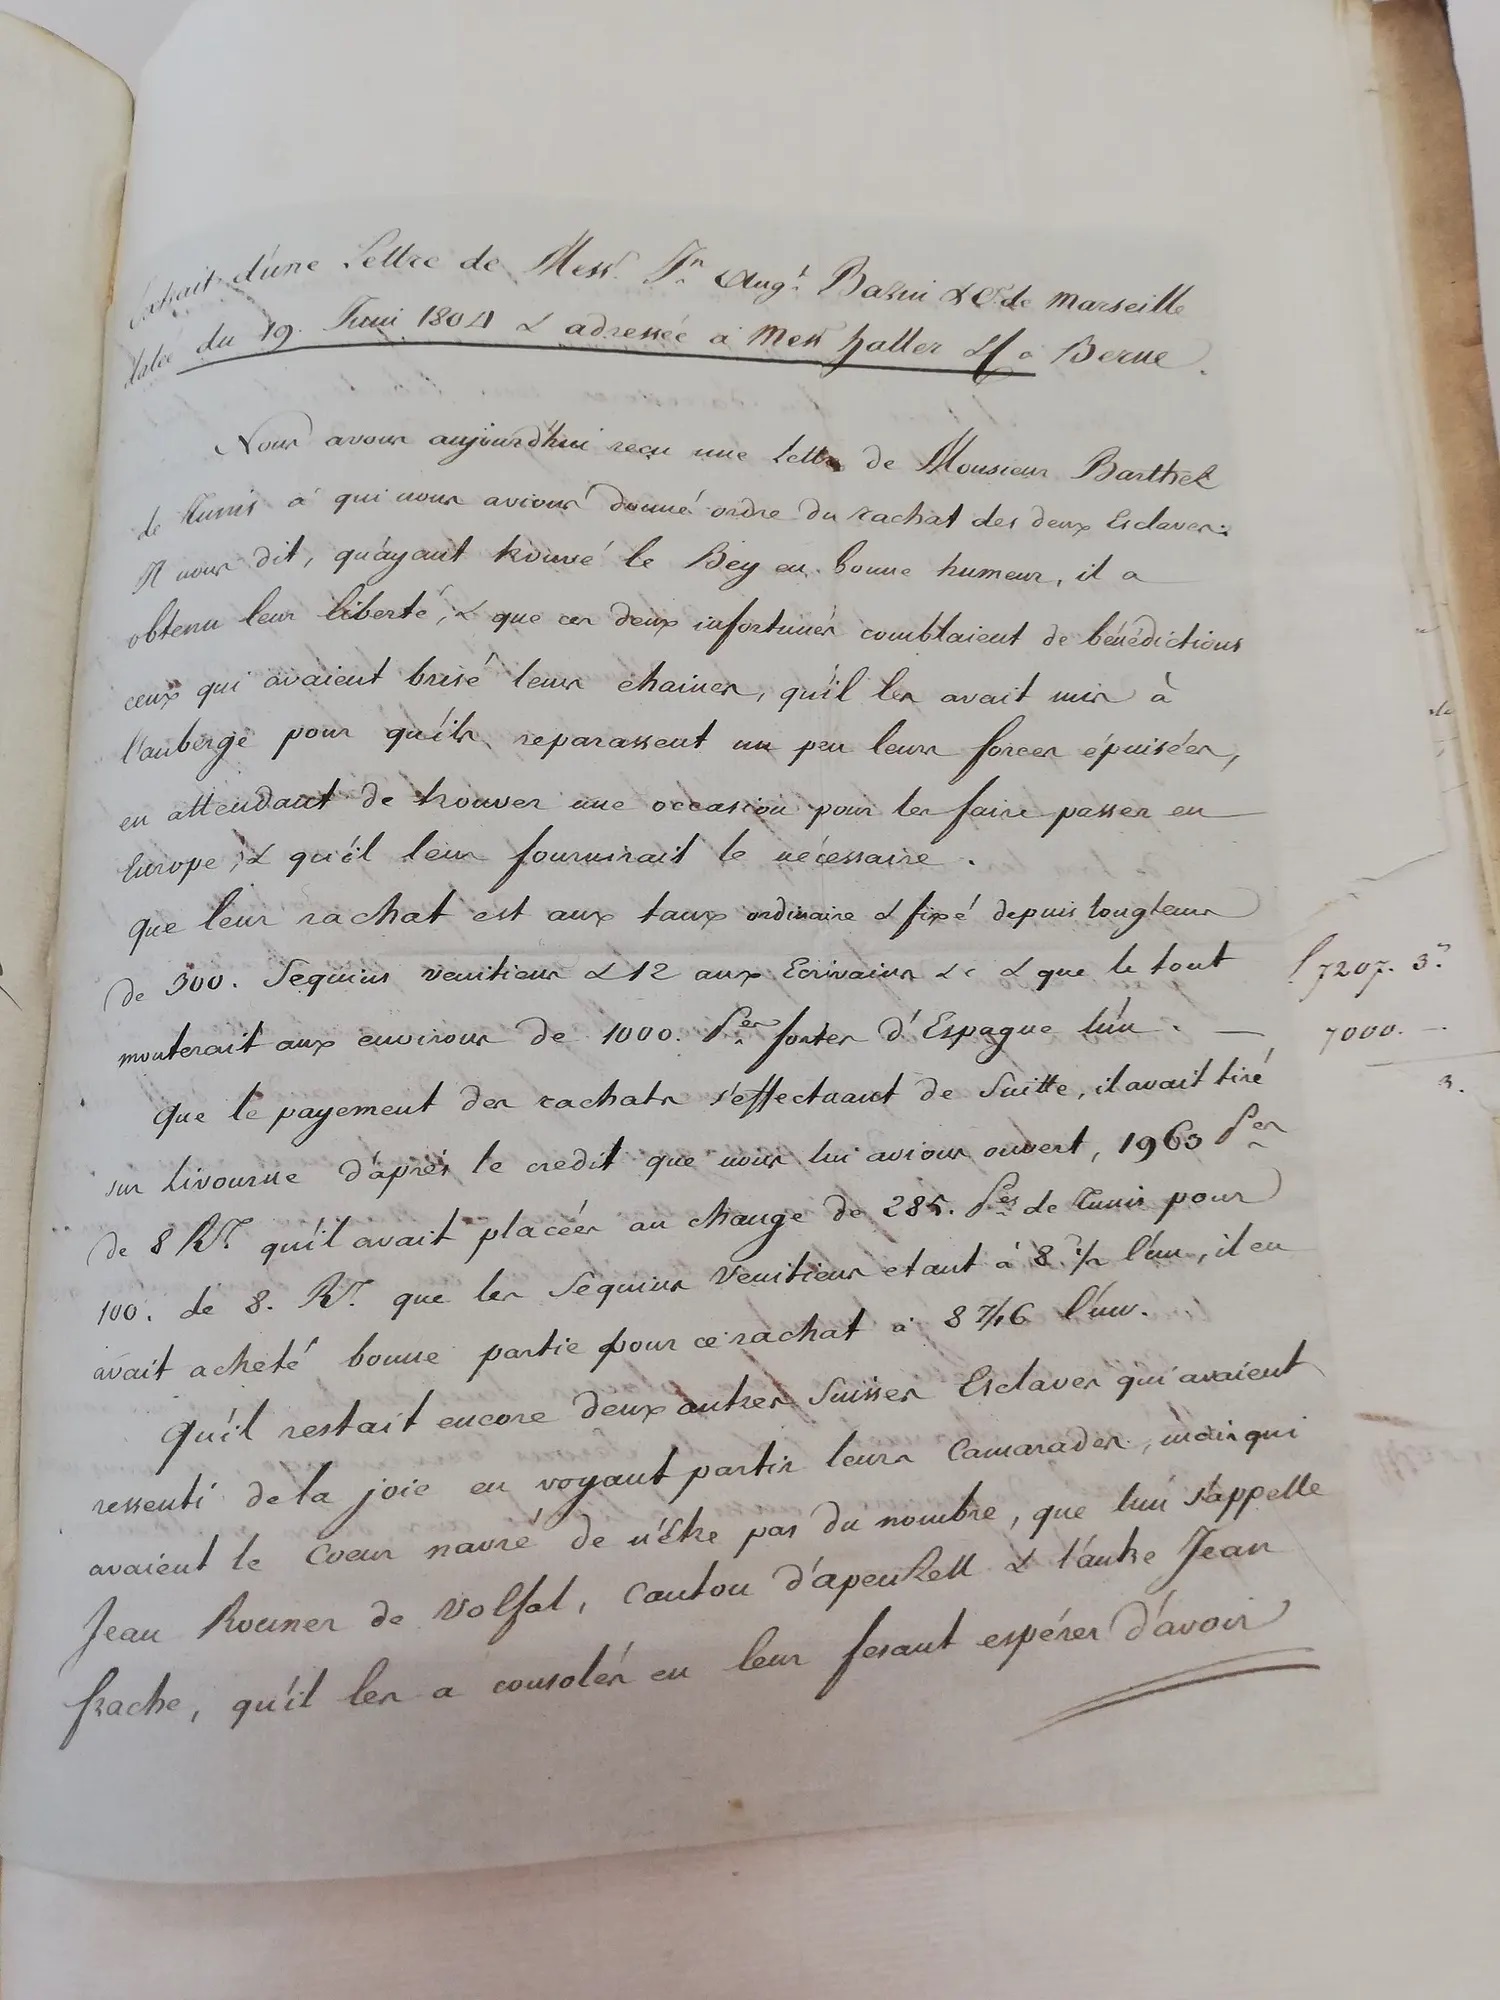 Extrait d'une Lettre de Mess.rs J.n Aug.t Bazin & C.e de Marseille
datée du 19. Juni 1804 & adressée à Mess Haller & à Berne.
Nous avons aujourd'hui reçu une lettre de Monsieur Barthel
de Tunis à qui nous avions donné ordre du rachat des deux Esclaves.
Il nous dit, qu'ayant trouvé le Bey en bonne humeur, il a
obtenu leur liberté, & que ces deux infortunés comblaient de bénédictions
ceux qui avaient brisé leurs chaines, qu'il les avait mis à
l'auberge pour qu'ils reparassent un peu leurs forces épuisées,
en attendant de trouver une occasion pour les faire passer en
Europe, & qu'il leur fournirait le nécessaire.
que leur rachat est aux taux ordinaire & fixé depuis longtems
de 300. Sequins venitiens & 12 aux Ecrivains &c & que le tout
monterait aux environs de 1000. P.es fortes d'Espagne l'un. —
Que le payement des rachats s'effectuant de Suitte, il avait tiré
sur Livourne d'après le credit que nous lui avions ouvert, 1963 P.es
de 8 R.x qu'il avait placées au change de 285. P.es de Tunis pour
100. de 8. R.x que les Sequins Venitiens etant à 8 1/2 l'un, il en
avait acheté bonne partie pour ce rachat à 8 7/16 l'un.
Qu'il restait encore deux autres Suisses Esclaves qui avaient
ressenti de la joie en voyant partir leurs Camarades, mais qui
avaient le Coeur navré de n'être pas du nombre, que l'un s'appelle
Jean Rouner de Volfal, Canton d'apenzell & l'autre Jean
frache, qu'il les a consolés en leur fesant espérer d'avoir
f 7207. 3.
7000. —
3.